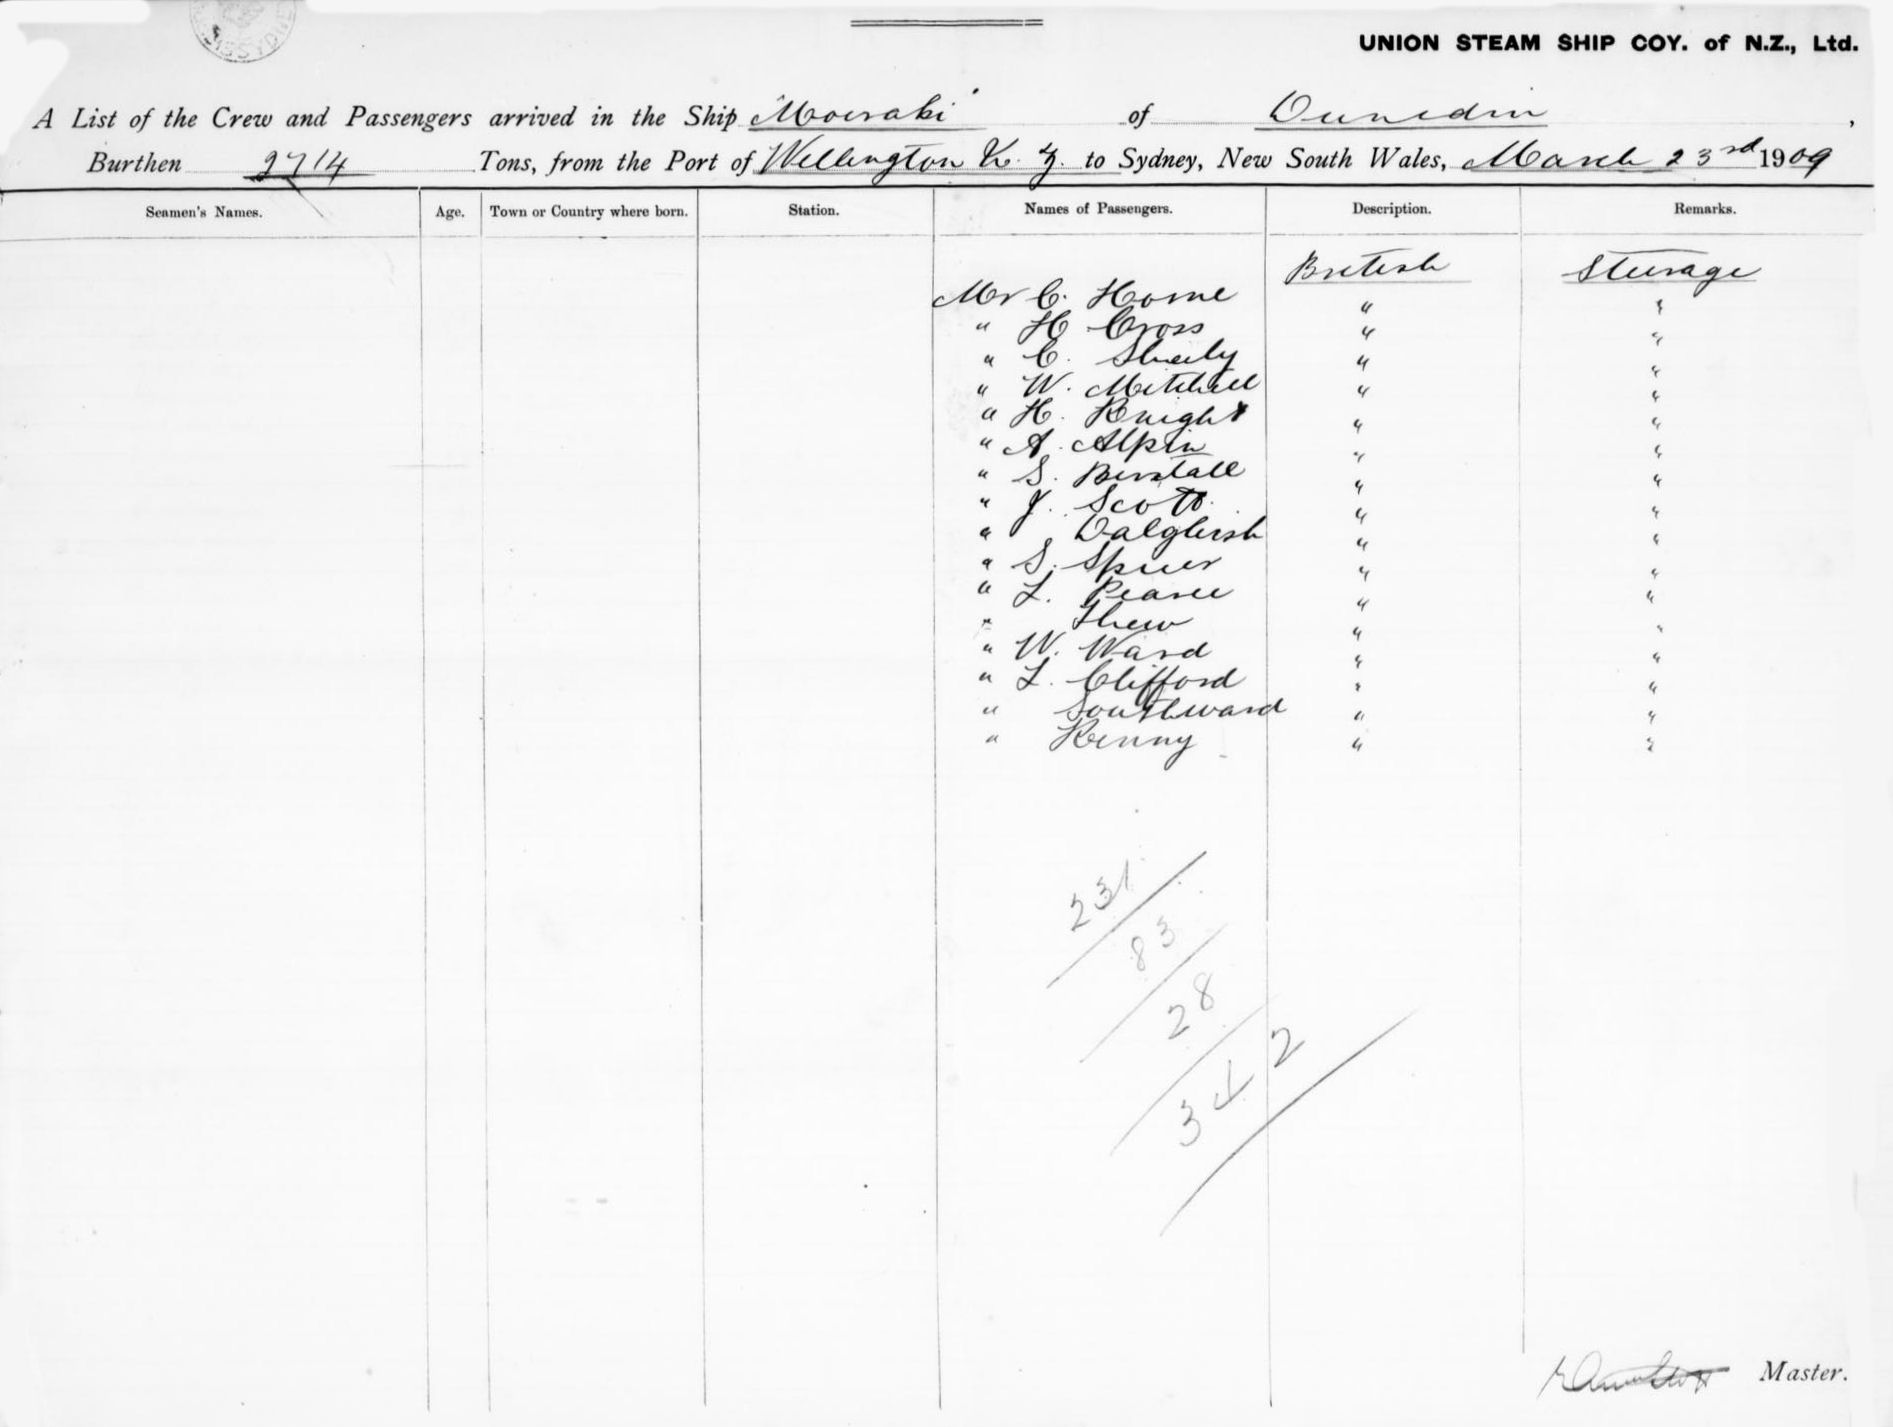 UNION STEAM SHIP COY. of N.Z., Ltd.
A List of the Crew and Passengers arrived in the Ship Moeraki of Dunedin,
Burthen 2714 Tons, from the Port of Wellington N. Z. to Sydney, New South Wales, March 23rd 1909
Seamen's Names. Age. Town or Country where born. Station. Names of Passengers. Description. Remarks.
British Steerage
Mr C. Horne " "
" H Cross " "
" C. Sheely " "
" W. Mitchell " "
" H. Knight " "
" A. Alpin " "
" S. Birstall " "
" J. Scott " "
" Dalgleish " "
" S. Spicer " "
" L. Pearce " "
" Thew " "
" W. Ward " "
" L. Clifford " "
" Southward " "
" Kenny " "
231
83
28
342
Master.